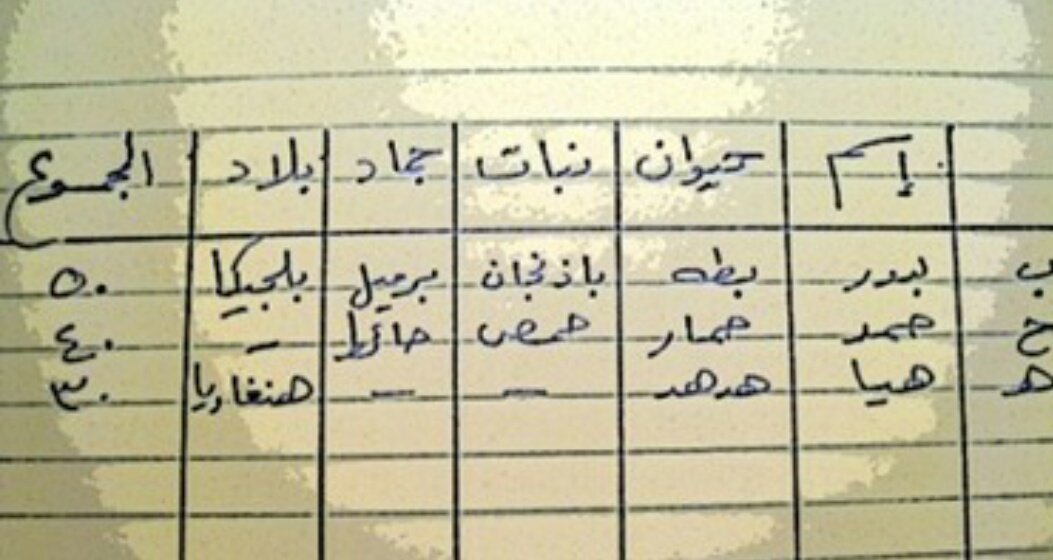 إسم حيوان نبات جماد بلاد المجموع
ب بدر بطه باذنجان برميل بلجيكا ٥٠
ح حمد حمار حمص حائط - ٤٠
ه هيا هدهد - - هنغاريا ٣٠